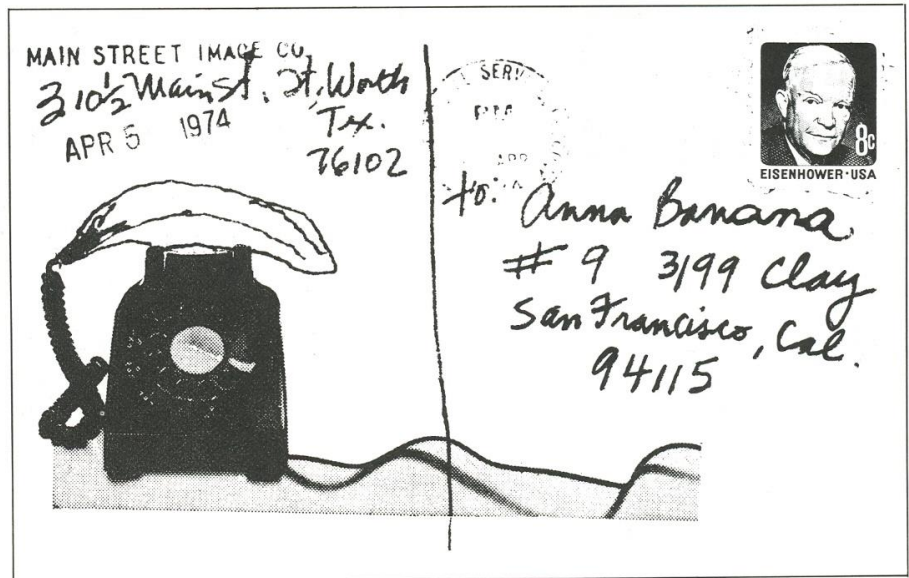 MAIN STREET IMAGE CO.
310½ Main St. Ft. Worth
Tx.
76102
APR 5 1974
SERV
APR
8c
EISENHOWER·USA
to: Anna Banana
# 9 3199 Clay
San Francisco, Cal.
94115